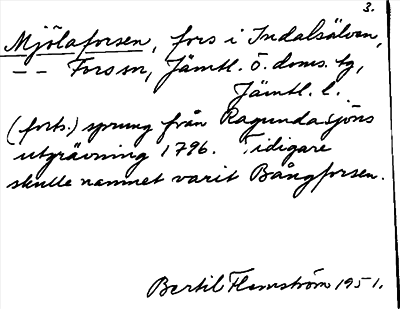 3.
Mjölaforsen, fors i Indalsälven,
-- Fors sn, Jämtl. ö. doms. tg,
Jämtl. l.
(forts.) sprung från Ragundasjöns
utgrävning 1796. Tidigare
skulle namnet varit Bångforsen.
Bertil Flemström 1951.